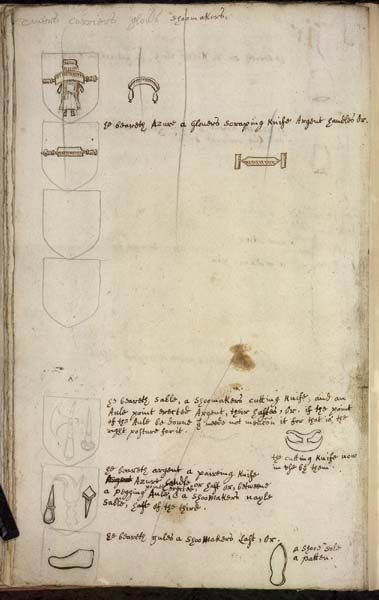 curriers glovers shoomakers.
he beareth Azure a Glovers scraping knife Argent handles Or.
he beareth, sable, a shoomakers cutting knife, and an
Aule point erected Argent, their haffts, Or. if the point
of the Aule be downe needs not mention it for that is the
right posture for it.
the cutting knife now
in use by them
he beareth argent a pareing knife
Azure or haft or, betweene
a pegging Aule, & a shoomakers nayle
sable, haft of the third.
he beareth gules a shoomakers Last, Or.
a shooe sole
a patten.